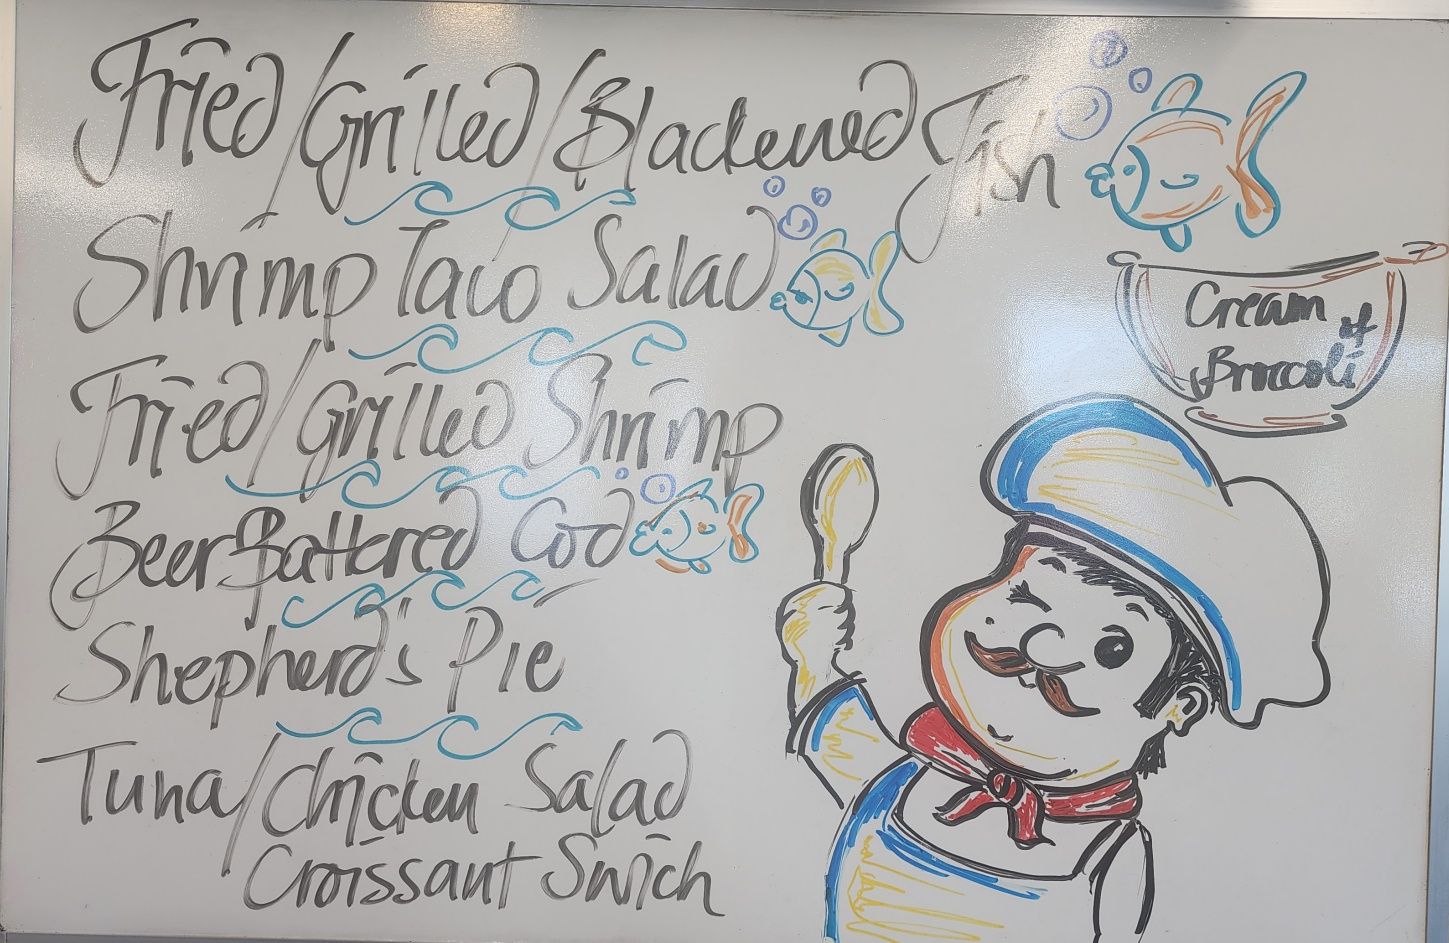 Fried/Grilled/Blackened Fish
Shrimp Taco Salad
Fried/Grilled Shrimp
Beer Battered Cod
Shepherd's Pie
Tuna/Chicken Salad
Croissant Swich
Cream of
Broccoli